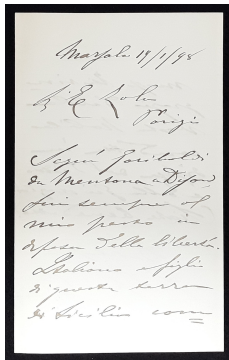 Marsala 19/1/98
E Zola
Parigi
Seguii Garibaldi
da Mentana a Digione,
fui sempre al
mio posto in
difesa della libertà.
Italiano e figlio
di questa terra
di Sicilia com